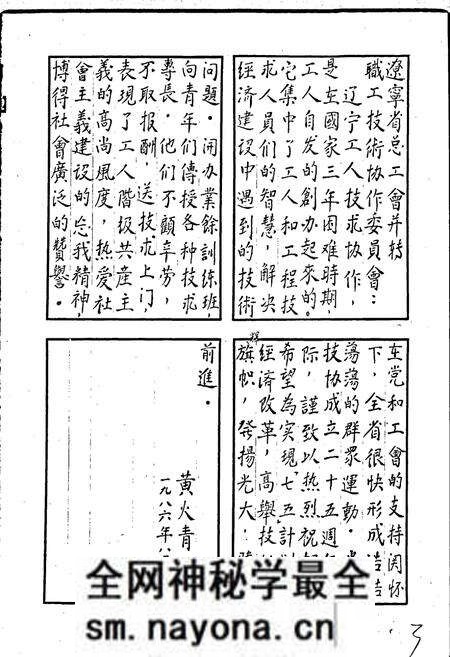 遼寧省总工會并转
職工技術协作委員會：
辽宁工人技术协作，
是在國家三年困难時期，
工人自发的創办起來的。
它集中了工人和工程技
术人員们的智慧，解决
經济建设中遇到的技術
问题。開办業餘訓练班，
向青年们傳授各种技术
專長，他们不顧辛劳，
不取报酬，送技术上门，
表現了工人階级共產主
義的高尚風度，热爱社
會主義建设的忘我精神，
博得社會廣泛的贊譽。
在党和工會的支持関怀
下，全省很快形成浩浩
蕩蕩的群眾運動。
技协成立二十五週
际，謹致以热烈祝
希望为实現七五計
經济改革，高舉技
旗帜，發揚光大，
前進。
黄火青
一九八六年八
全网神秘学最全
sm.nayona.cn
3